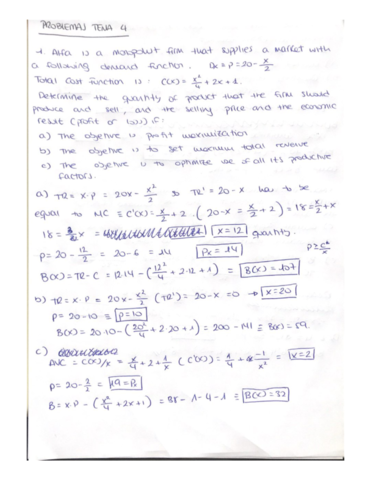 PROBLEMAS TEMA 4
Alfa is a monopolist firm that supplies a market with
a following demand function. Px = P = 20 - x/2
Total Cost function is: C(x) = x²/4 + 2x + 1.
Determine the quantity of product that the firm should
produce and sell, and the selling price and the economic
result (profit or loss) if:
a) The objetive is profit maximization
b) The objetive is to get maximum total revenue
c) The objetive is to optimize use of all it's productive
factors.
a) TR = x·P = 20x - x²/2 so TR' = 20 - x has to be
equal to MC = C'(x) = x/2 + 2. (20 - x = x/2 + 2) = 18 = x/2 + x
18 = 3/2 x = x = 12 quantity.
P = 20 - 12/2 = 20 - 6 = 14 Px = 14
B(x) = TR - C = 12·14 - (12²/4 + 2·12 + 1) = B(x) = 107
b) TR = x·P = 20x - x²/2 (TR') = 20 - x = 0 → x = 20
P = 20 - 10 = P = 10
B(x) = 20·10 - (20²/4 + 2·20 + 1) = 200 - 141 = B(x) = 59.
c)
AVC = C(x)/x = x/4 + 2 + 1/x (C'(x)) = 1/4 + -1/x² = x = 2
P = 20 - 2/2 = 19 = Px
B = x·P - (x²/4 + 2x + 1) = 38 - 1 - 4 - 1 = B(x) = 32